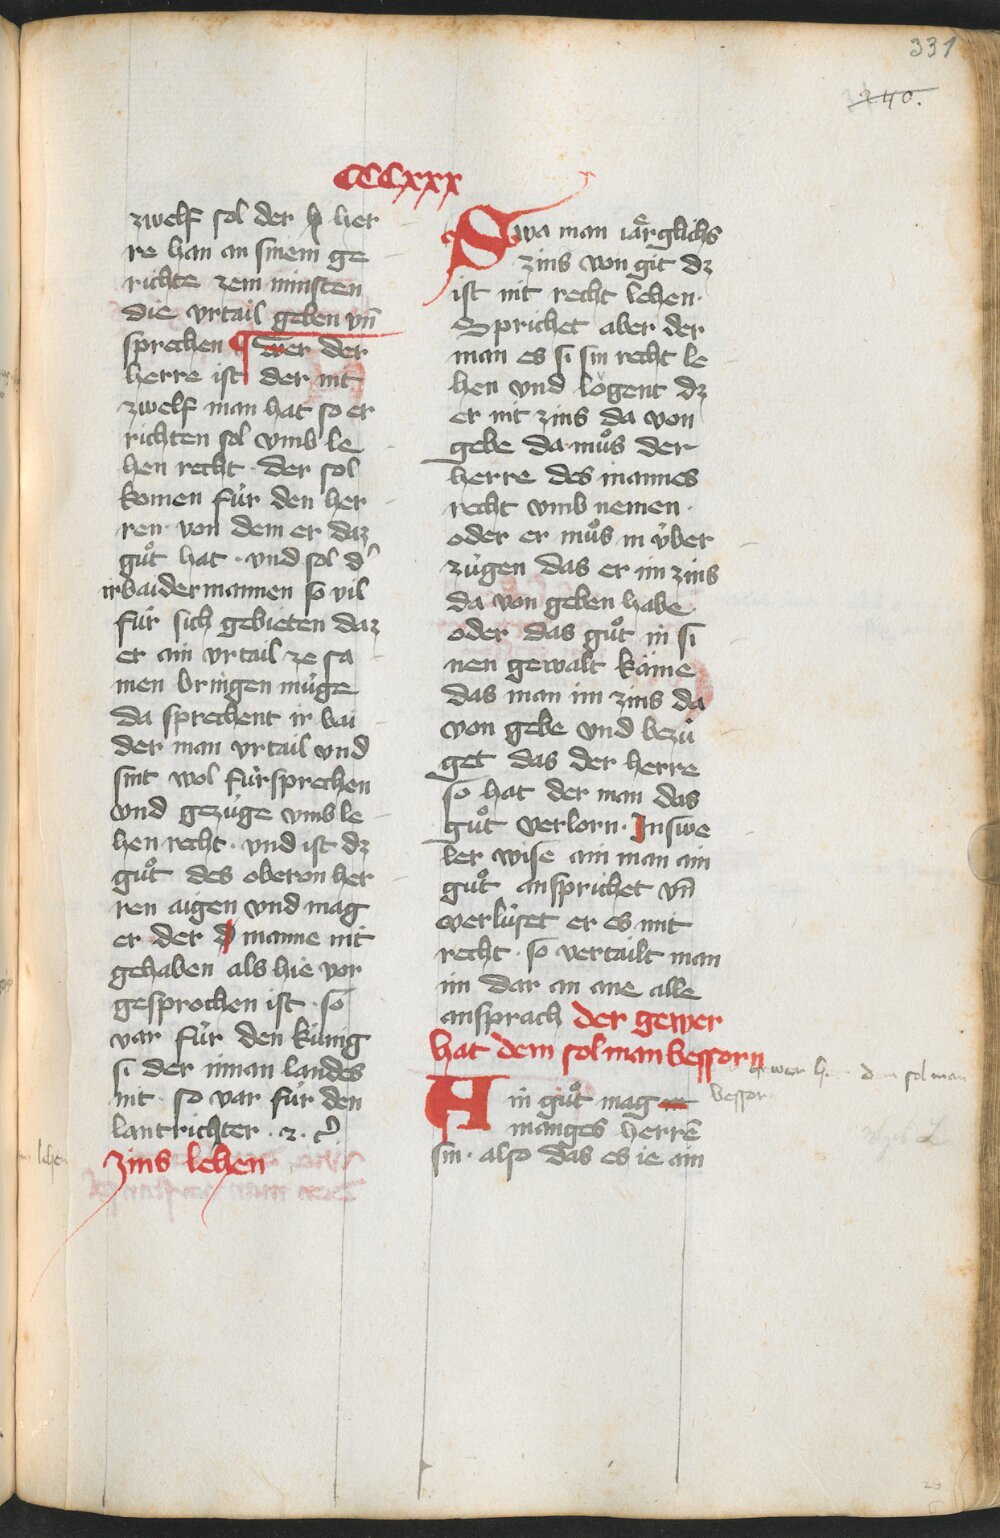 331
240.
CCCxxx
zwelf sol der h her
re han an sinem ge
richte zem minsten
die vrtail geben vn̄
sprechen ¶ Wer der
herre ist der nit
zwelf man hat so er
richten sol vmb le
hen recht · der sol
komen fúr den her
ren · von dem er daz
gůt hat · vnd sol d'
ir baider mannen so vil
fúr sich gebieten daz
er ain vrtail ze sa
men bringen múge
da sprechent ir bai
der man vrtail vnd
sint wol fúrsprechen
vnd gezúge vmb le
hen recht · vnd ist dz
gůt des oberon her
ren aigen vnd mag
er der d manne nit
gehaben als hie vor
gesprochen ist · so
var fúr den kúnig
si der inman landes
nit · so var fúr den
lantrichter · z · c̄
zins lehen
Swa man iärglichs
zins von git dz
ist nit recht lehen ·
Sprichet aber der
man es si sin recht le
hen vnd lögent dz
er nit zins da von
gebe da můs der
herre des mannes
recht vmb nemen ·
oder er můs in v́ber
zúgen das er im zins
da von geben habe
oder das gůt in si
nen gewalt käme
das man im zins da
von gebe vnd bezú
get das der herre
so hat der man das
gůt verlorn · In swe
ler wise ain man ain
gůt ansprichet vn̄
verlúset er es mit
recht · so vertailt man
im dar an ane alle
ansprach der gewer
hat dem sol man bessorn
Ain gůt mag
manges herrē
sin · also das es ie ain
dem sol man
bessor
lehe